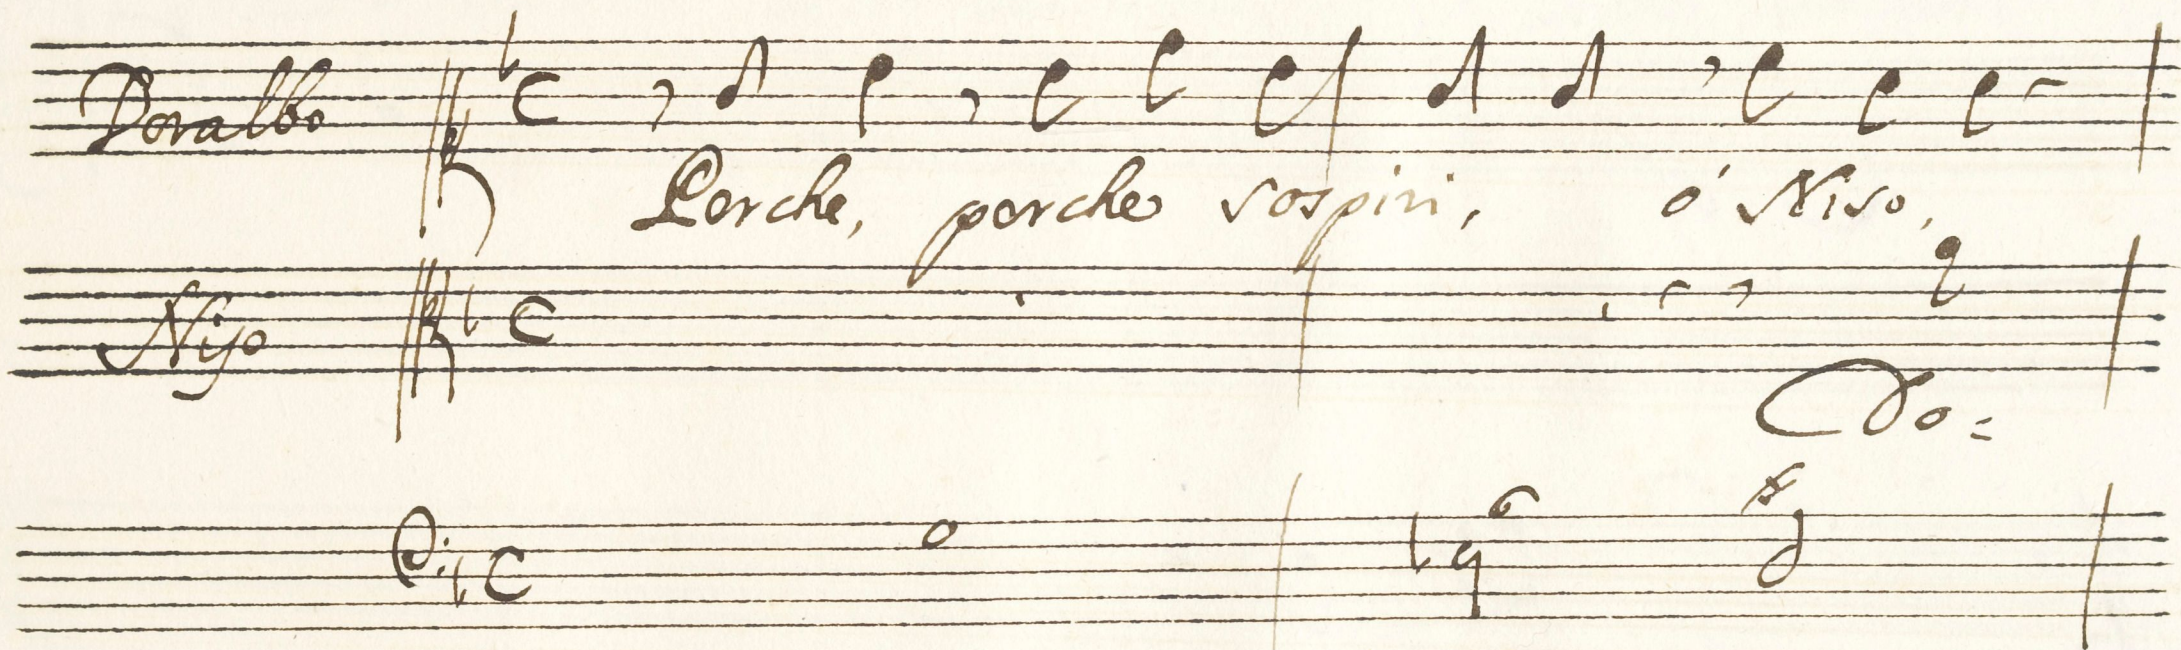 Doralbo
Perche, perche sospiri, ó Niso,
Niso
Do=